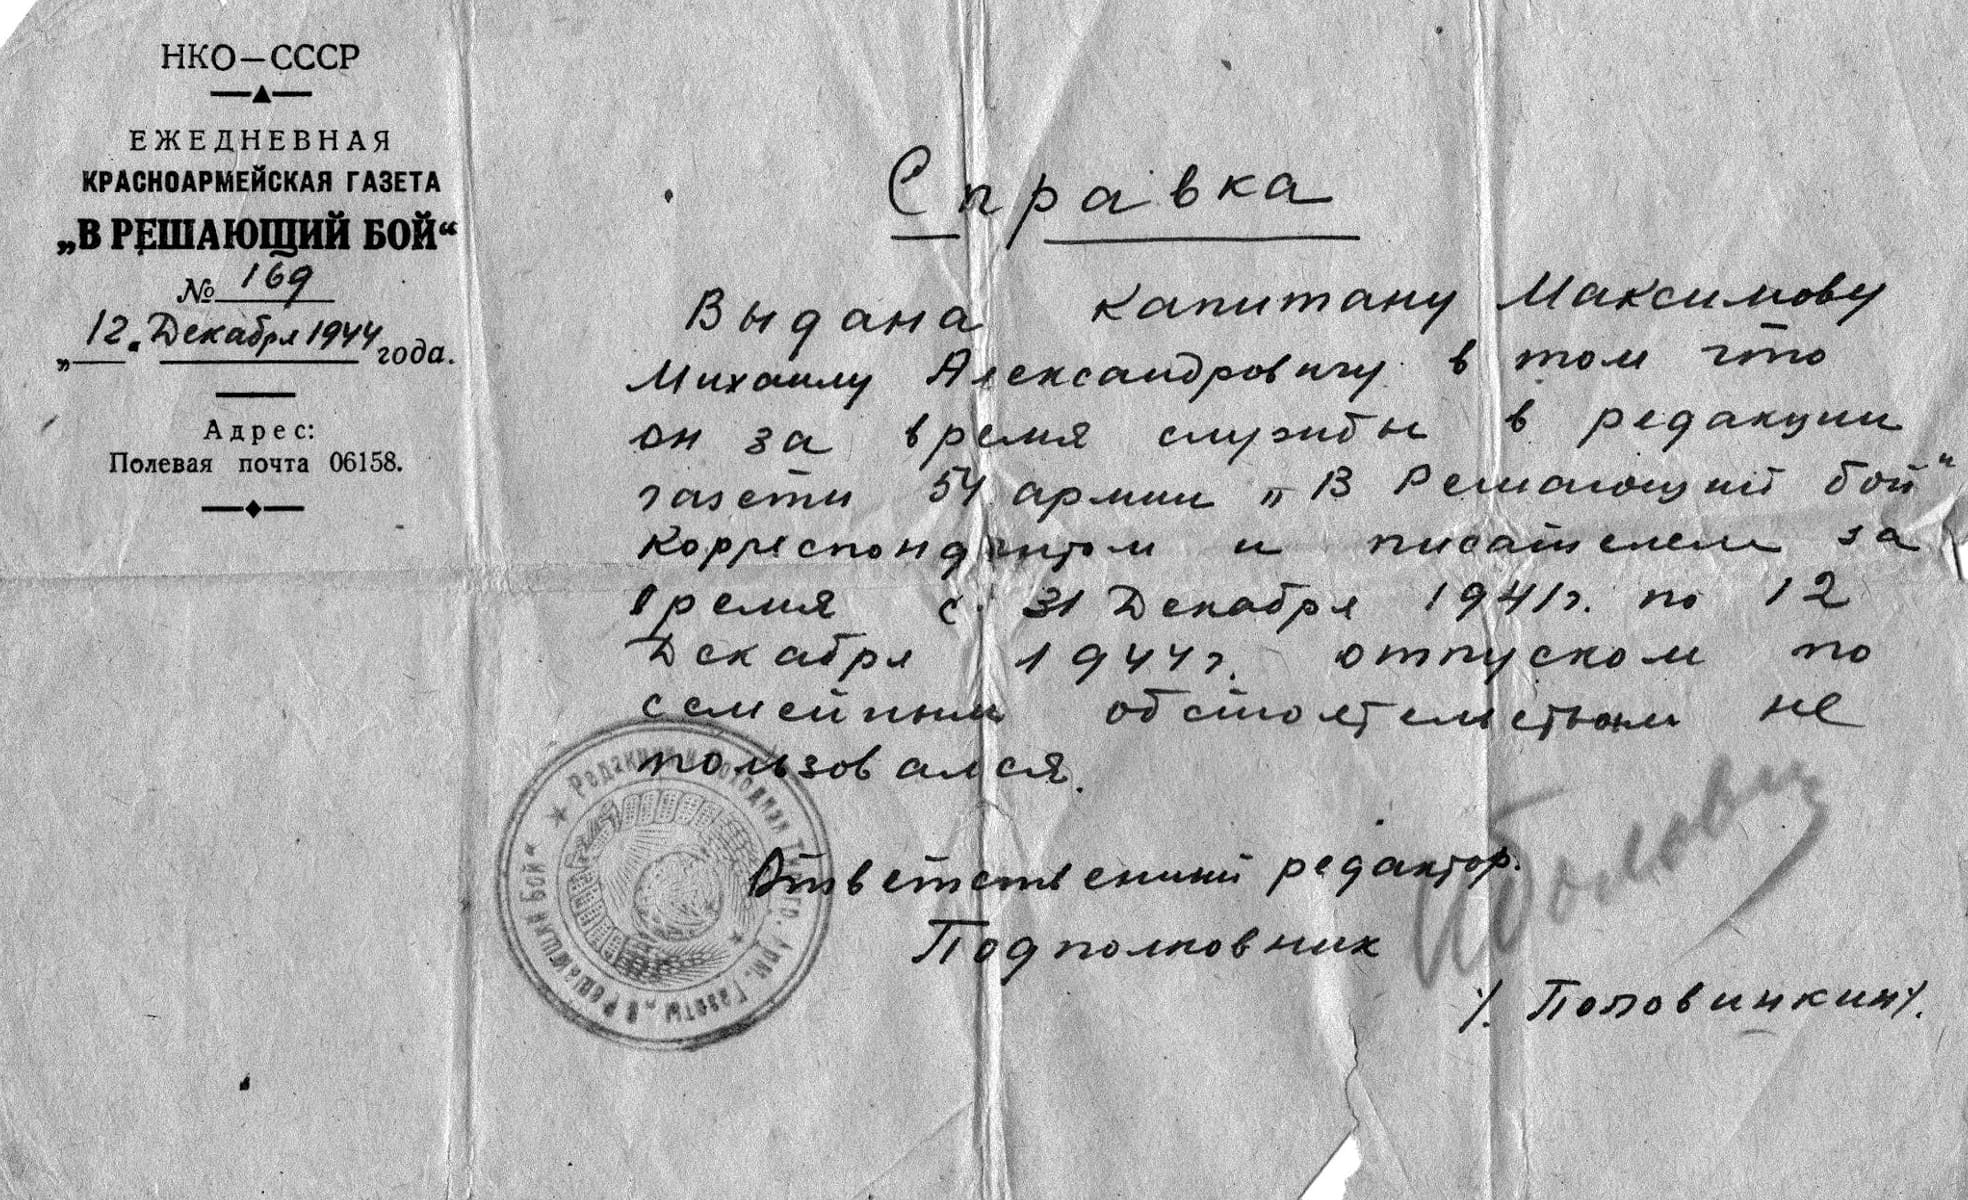 НКО—СССР
ЕЖЕДНЕВНАЯ
КРАСНОАРМЕЙСКАЯ ГАЗЕТА
„В РЕШАЮЩИЙ БОЙ“
№ 169
„12„ Декабря 1944 года.
Адрес:
Полевая почта 06158.
Справка
Выдана капитану Максимову
Михаилу Александровичу в том что
он за время службы в редакции
газеты 54 армии „В Решающий бой"
корреспондентом и писателем за
время с 31 Декабря 1941г. по 12
Декабря 1944г. отпуском по
семейным обстоятельствам не
пользовался.
Ответственный редактор.
Подполковник
/. Половинкин/.
★ Редакция и Походная Типогр. Арм. Газеты „В Решающий Бой“ ★